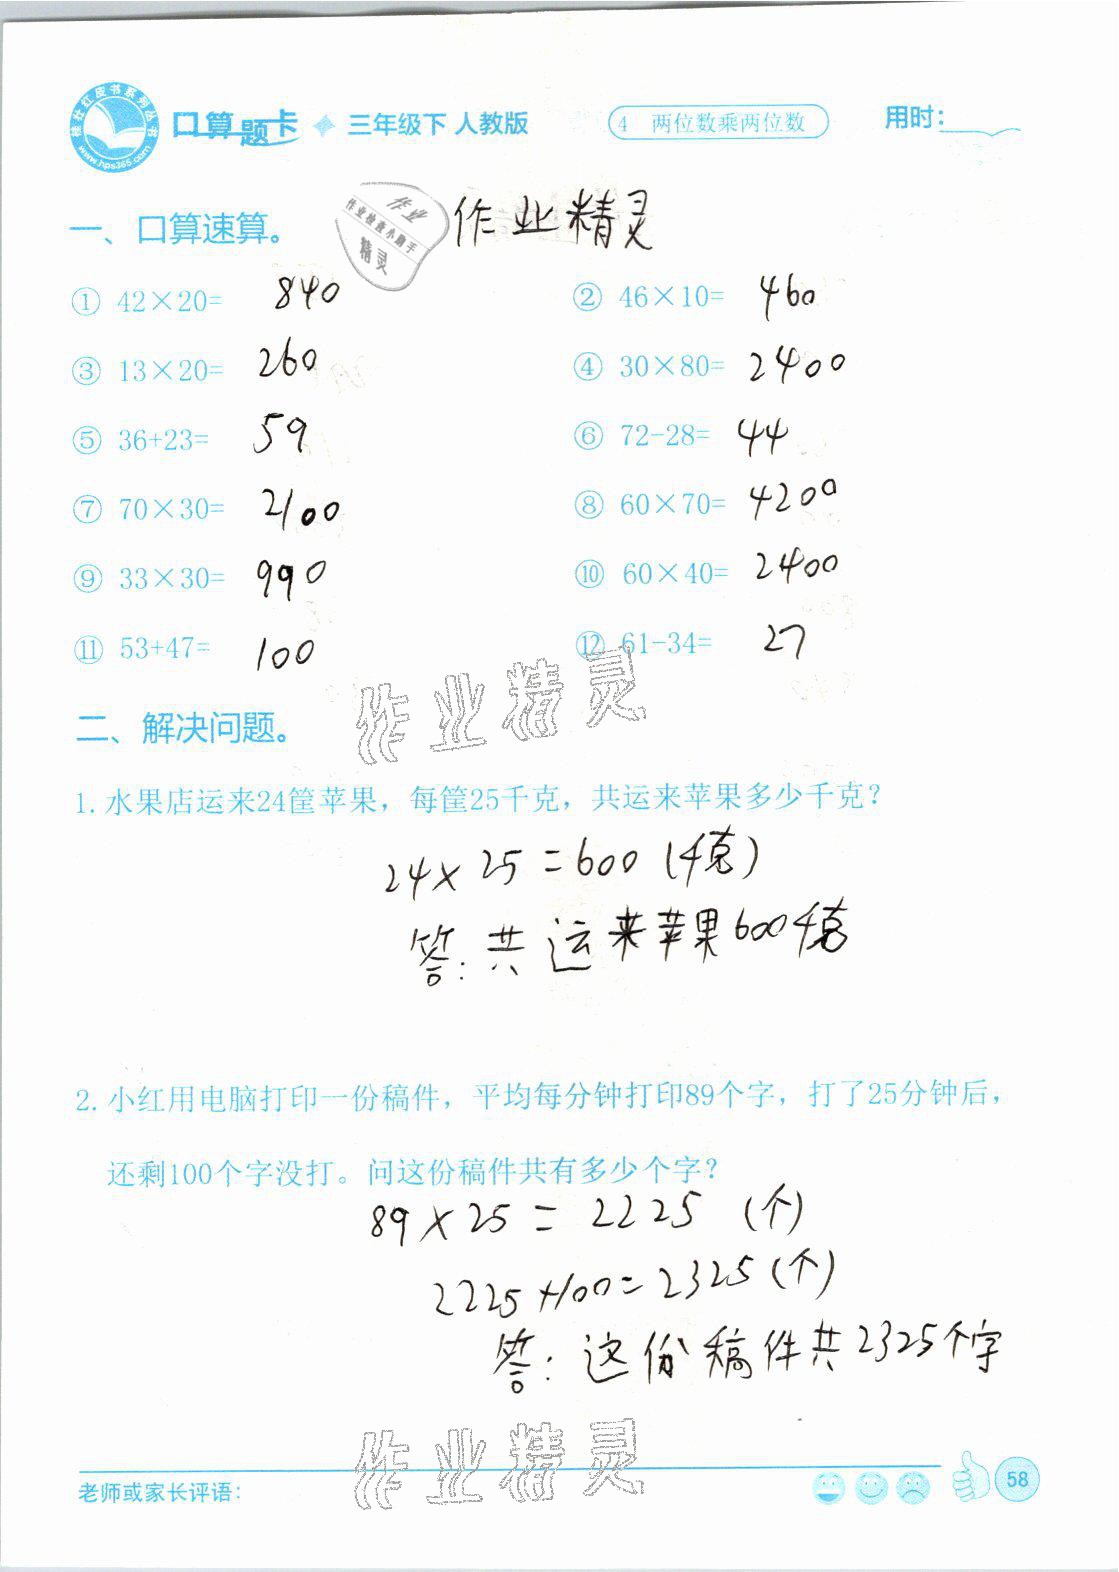 桂壮红皮书系列丛书
www.hps365.com
口算题卡 三年级下 人教版
4 两位数乘两位数
用时：
作业
作业检查小助手
精灵
作业精灵
一、口算速算。
① 42×20= 840 ② 46×10= 460
③ 13×20= 260 ④ 30×80= 2400
⑤ 36+23= 59 ⑥ 72-28= 44
⑦ 70×30= 2100 ⑧ 60×70= 4200
⑨ 33×30= 990 ⑩ 60×40= 2400
⑪ 53+47= 100 ⑫ 61-34= 27
作业精灵
二、解决问题。
1. 水果店运来24筐苹果，每筐25千克，共运来苹果多少千克？
24×25=600(千克)
答：共运来苹果600千克
2. 小红用电脑打印一份稿件，平均每分钟打印89个字，打了25分钟后，
还剩100个字没打。问这份稿件共有多少个字？
89×25=2225(个)
2225+100=2325(个)
答：这份稿件共2325个字
作业精灵
老师或家长评语：
58